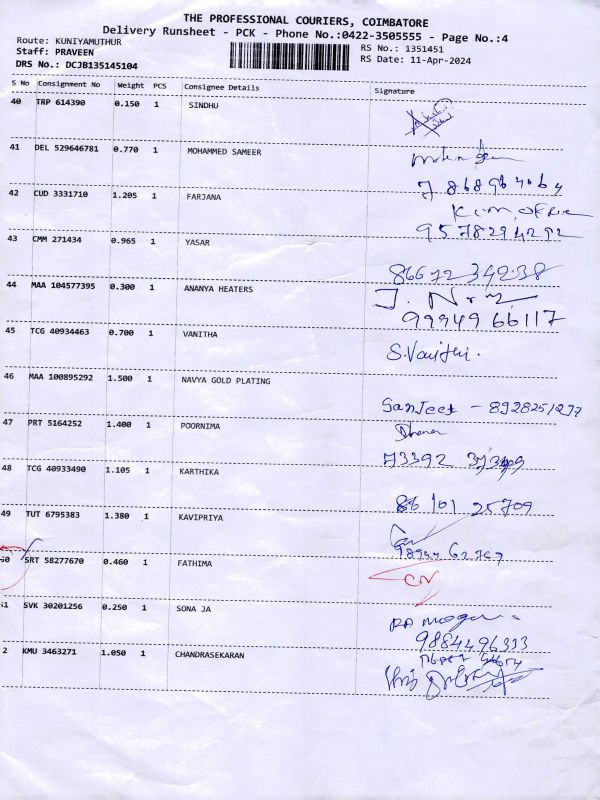 THE PROFESSIONAL COURIERS, COIMBATORE
Delivery Runsheet - PCK - Phone No.:0422-3505555 - Page No.:4
Route: KUNIYAMUTHUR RS No.: 1351451
Staff: PRAVEEN RS Date: 11-Apr-2024
DRS No.: DCJB135145104
S No Consignment No Weight PCS Consignee Details Signature
40 TRP 614390 0.150 1 SINDHU
41 DEL 529646781 0.770 1 MOHAMMED SAMEER
42 CUD 3331710 1.205 1 FARJANA
9578294292
43 CMM 271434 0.965 1 YASAR
44 MAA 104577395 0.300 1 ANANYA HEATERS
9994966117
45 TCG 40934463 0.700 1 VANITHA
S.Vanitha.
46 MAA 100895292 1.500 1 NAVYA GOLD PLATING
Sanjeet - 8928251277
47 PRT 5164252 1.400 1 POORNIMA
48 TCG 40933490 1.105 1 KARTHIKA
86 101 25709
49 TUT 6795383 1.380 1 KAVIPRIYA
50 SRT 58277670 0.460 1 FATHIMA
CN
51 SVK 30201256 0.250 1 SONA JA
9884496333
2 KMU 3463271 1.050 1 CHANDRASEKARAN